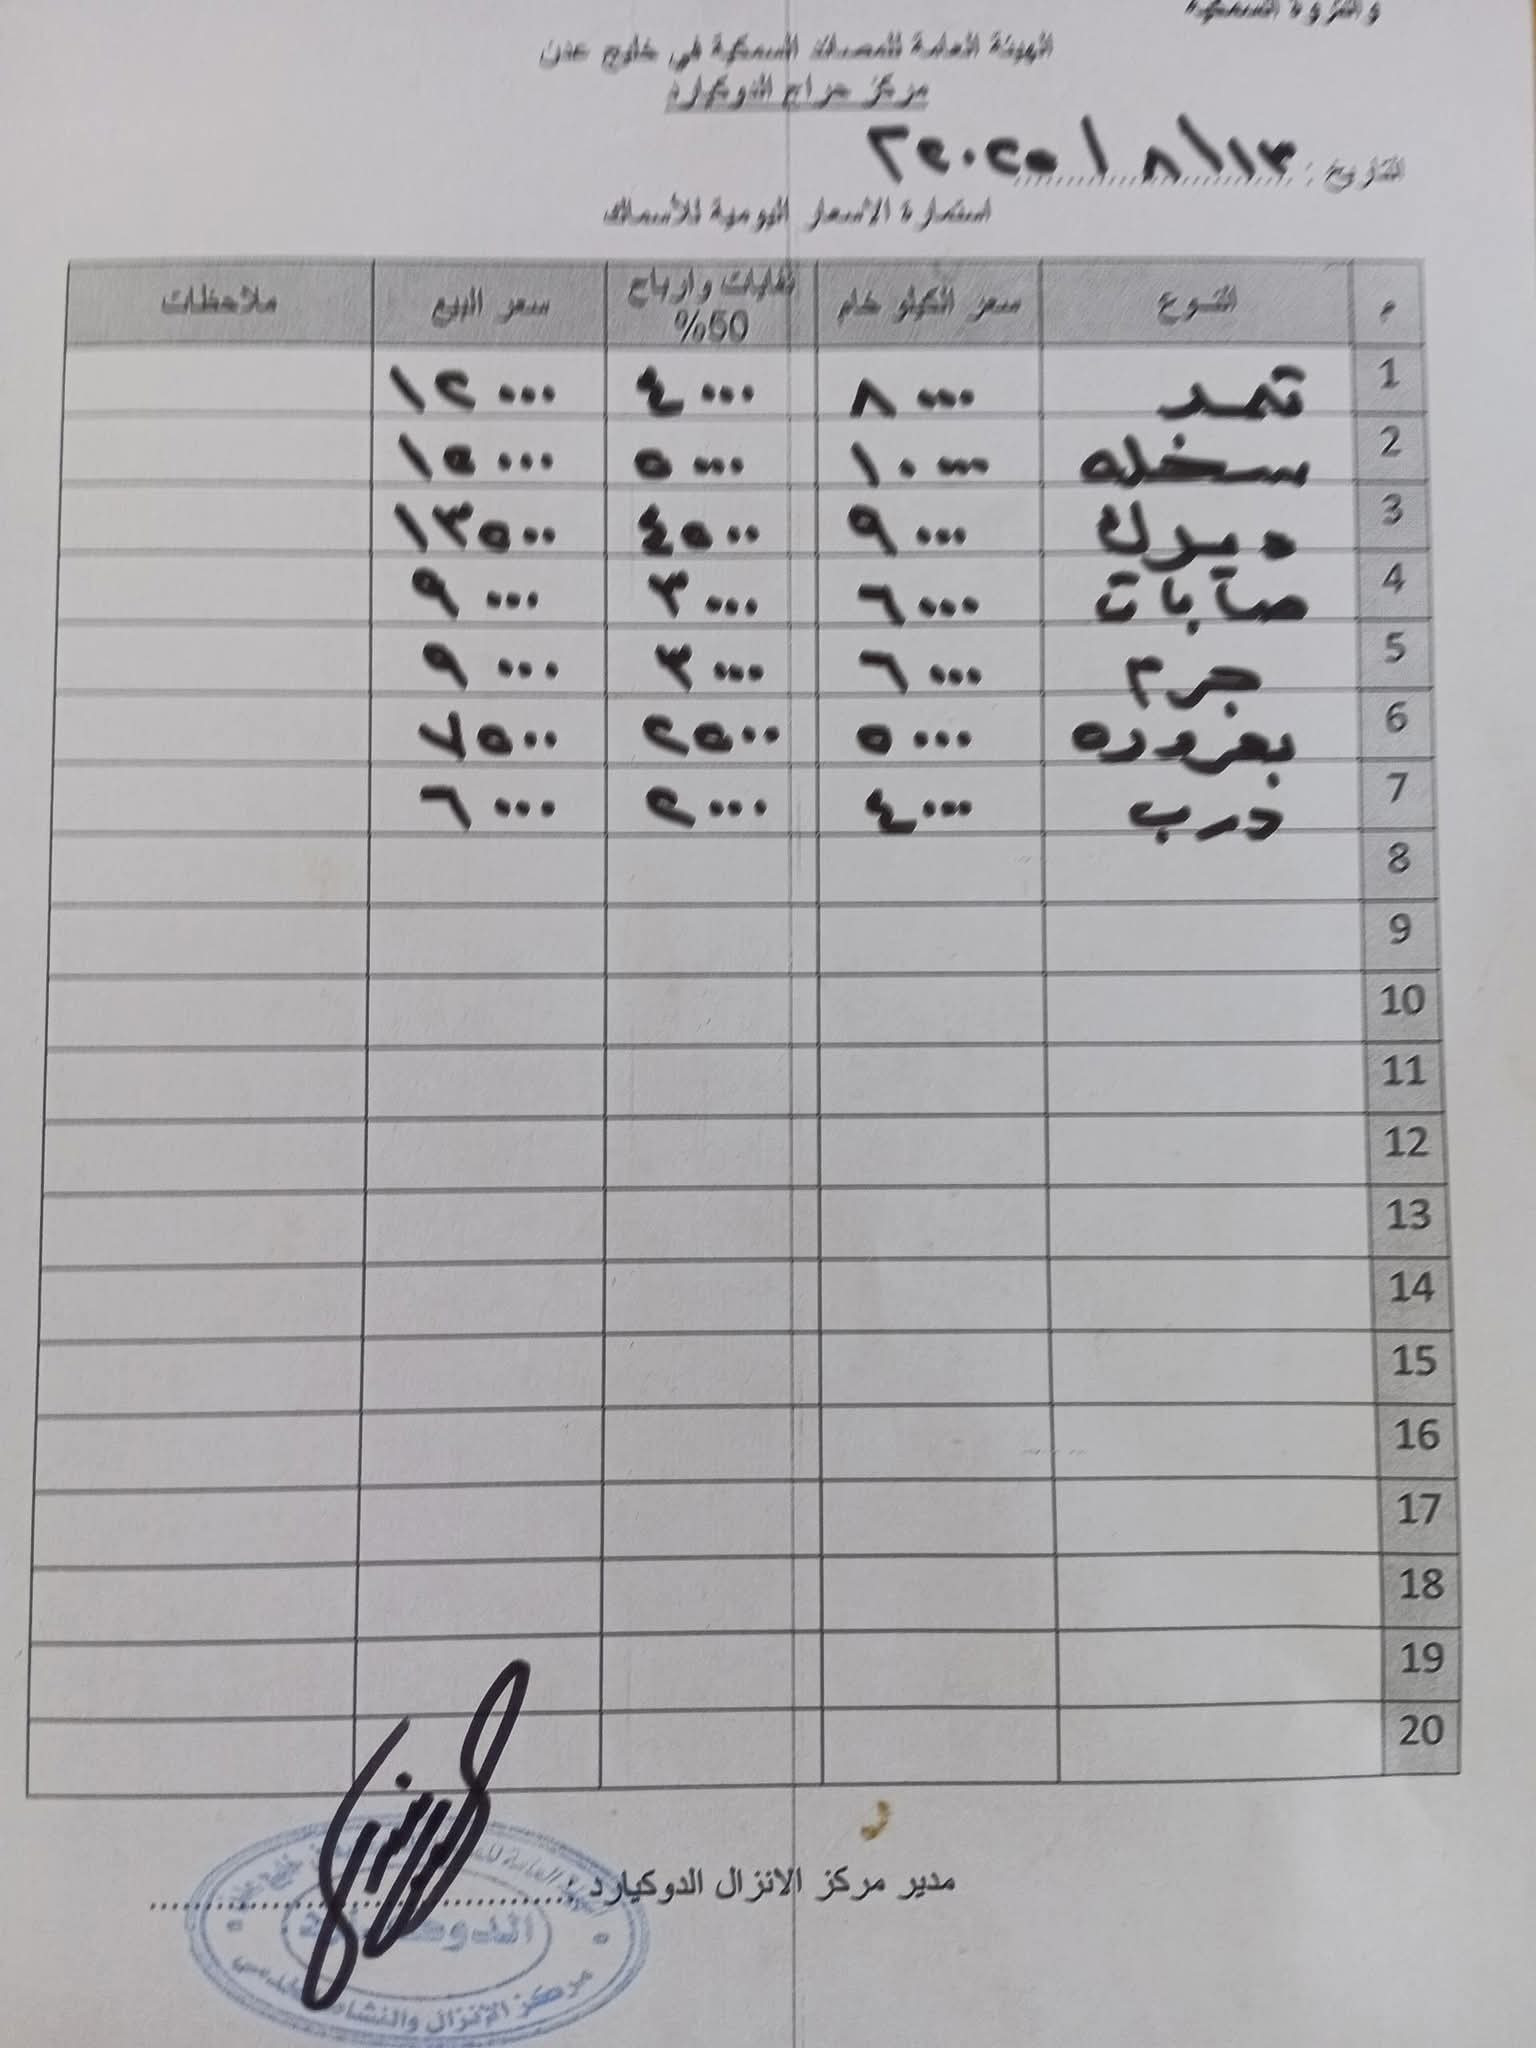 والثروة السمكية
الهيئة العامة للمصائد السمكية في خليج عدن
مركز حراج الدوكيارد
التاريخ : ١٣ / ٨ / ٢٠٢٥
استمارة الأسعار اليومية للأسماك
م النوع سعر الكيلو خام نفايات وارباح 50% سعر البيع ملاحظات
1 ثمد ٨٠٠٠ ٤٠٠٠ ١٢٠٠٠
2 سخله ١٠٠٠٠ ٥٠٠٠ ١٥٠٠٠
3 ديرك ٩٠٠٠ ٤٥٠٠ ١٣٥٠٠
4 صابات ٦٠٠٠ ٣٠٠٠ ٩٠٠٠
5 جرم ٦٠٠٠ ٣٠٠٠ ٩٠٠٠
6 بغروده ٥٠٠٠ ٢٥٠٠ ٧٥٠٠
7 درب ٤٠٠٠ ٢٠٠٠ ٦٠٠٠
8
9
10
11
12
13
14
15
16
17
18
19
20
مدير مركز الانزال الدوكيارد :
مركز الإنزال والنشاط